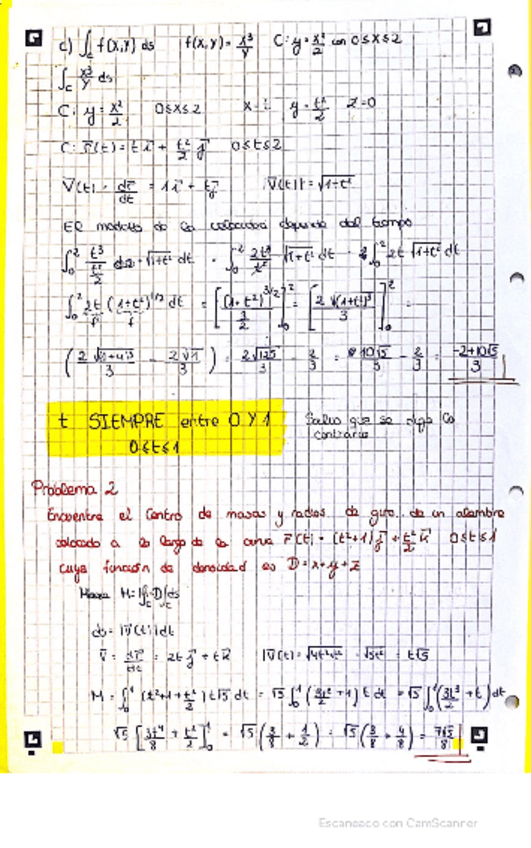 c) ∫_C f(x,y) ds   f(x,y) = x³/y   C: y = x²/2 con 0≤x≤2
∫_C x³/y ds
C: y = x²/2   0≤x≤2   x = t   y = t²/2   z=0
C: r̄(t) = t i + t²/2 j   0≤t≤2
V̄(t) = dr̄/dt = 1i + tj   |V̄(t)| = √(1+t²)
El modulo de la velocidad depende del tiempo
∫₀² t³/(t²/2) √(1+t²) dt = ∫₀² 2t³/t² √(1+t²) dt = ∫₀² 2t √(1+t²) dt
∫₀² 2t (1+t²)^(1/2) dt = [(1+t²)^(3/2) / (3/2)]₀² = [2√(1+t²)³ / 3]₀² =
(2√(1+4)³/3 - 2√1/3) = 2√125/3 - 2/3 = 10√5/3 - 2/3 = (-2+10√5)/3
t SIEMPRE entre 0 Y 1   Salvo que se diga lo
0≤t≤1   contrario
Problema 2
Encuentre el Centro de masas y radios de giro de un alambre
colocado a lo largo de la curva r̄(t) = (t²+1)j + t²/2 k   0≤t≤1
cuya función de densidad es D = x+y+z
Masa M = ∫_C D ds
ds = |V̄(t)| dt
V̄ = dr̄/dt = 2t j + t k   |V̄(t)| = √(4t²+t²) = √5t² = t√5
M = ∫₀¹ (t²+1+t²/2) t√5 dt = √5 ∫₀¹ (3t²/2 + 1) t dt = √5 ∫₀¹ (3t³/2 + t) dt
√5 [3t⁴/8 + t²/2]₀¹ = √5 (3/8 + 1/2) = √5 (3/8 + 4/8) = 7√5/8
Escaneado con CamScanner